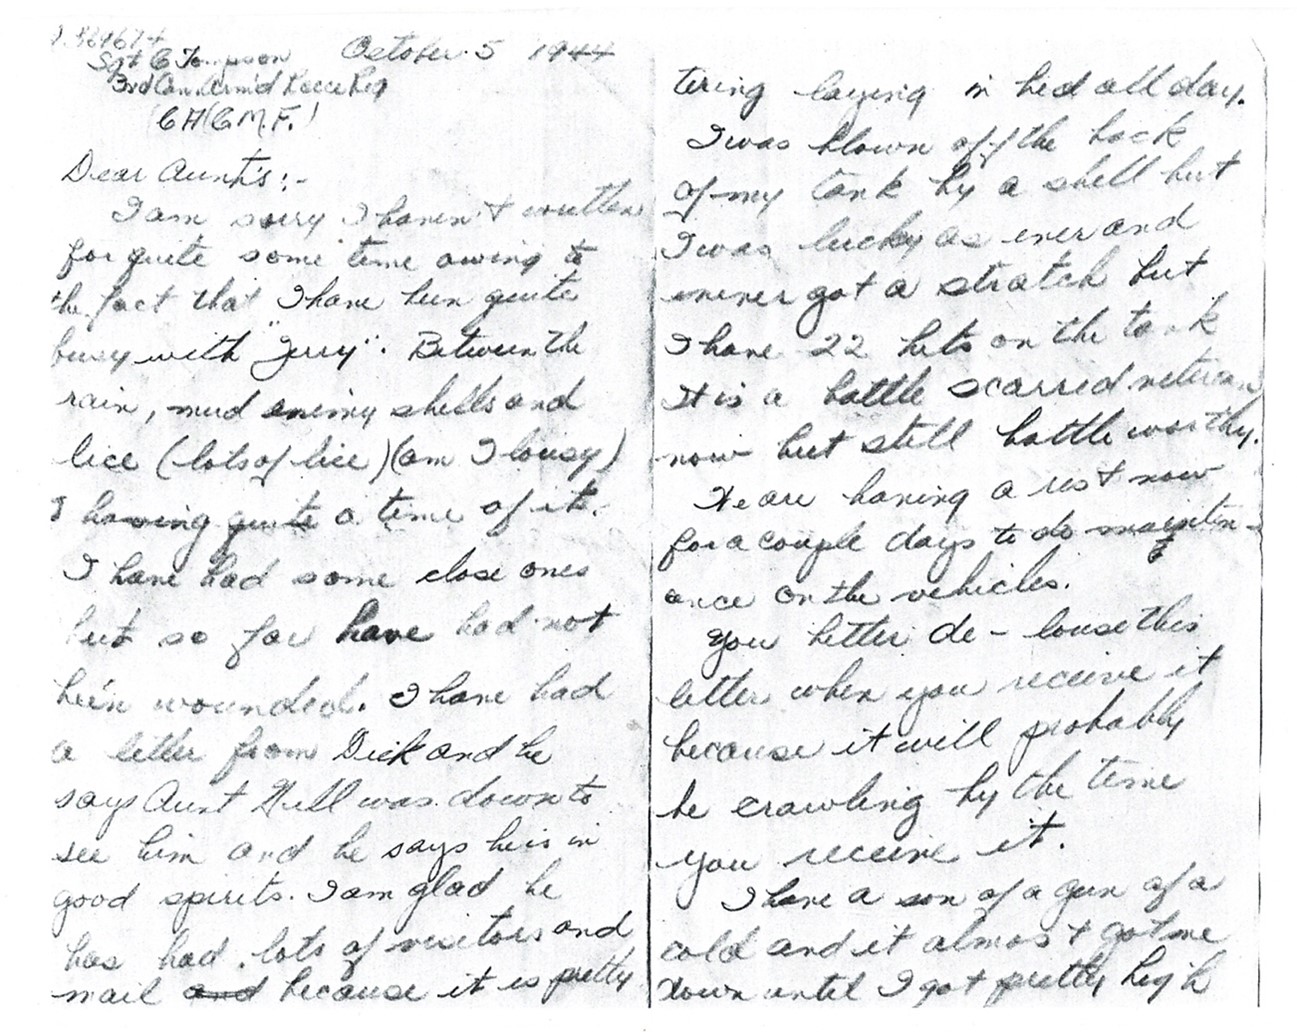 Sgt C Tompson October 5 1944
3rd Can. Arm'd Recce Reg
(CA) C.M.F.
Dear Aunt's:-
I am sorry I haven't written
for quite some time owing to
the fact that I have been quite
busy with "Jerry". Between the
rain, mud enemy shells and
lice (lots of lice) (am I lousy)
I having quite a time of it.
I have had some close ones
but so far have had not
been wounded. I have had
a letter from Dick and he
says Aunt Nell was down to
see him and he says he is in
good spirits. I am glad he
has had lots of visitors and
mail and because it is pretty
tering laying in bed all day.
I was blown off the back
of my tank by a shell but
I was lucky as ever and
never got a stratch but
I have 22 hits on the tank
It is a battle scarred veteran
now but still battle worthy.
We are having a rest now
for a couple days to do mainten-
ance on the vehicles.
You better de-louse this
letter when you receive it
because it will probably
be crawling by the time
you receive it.
I have a son of a gun of a
cold and it almost got me
down until I got pretty high